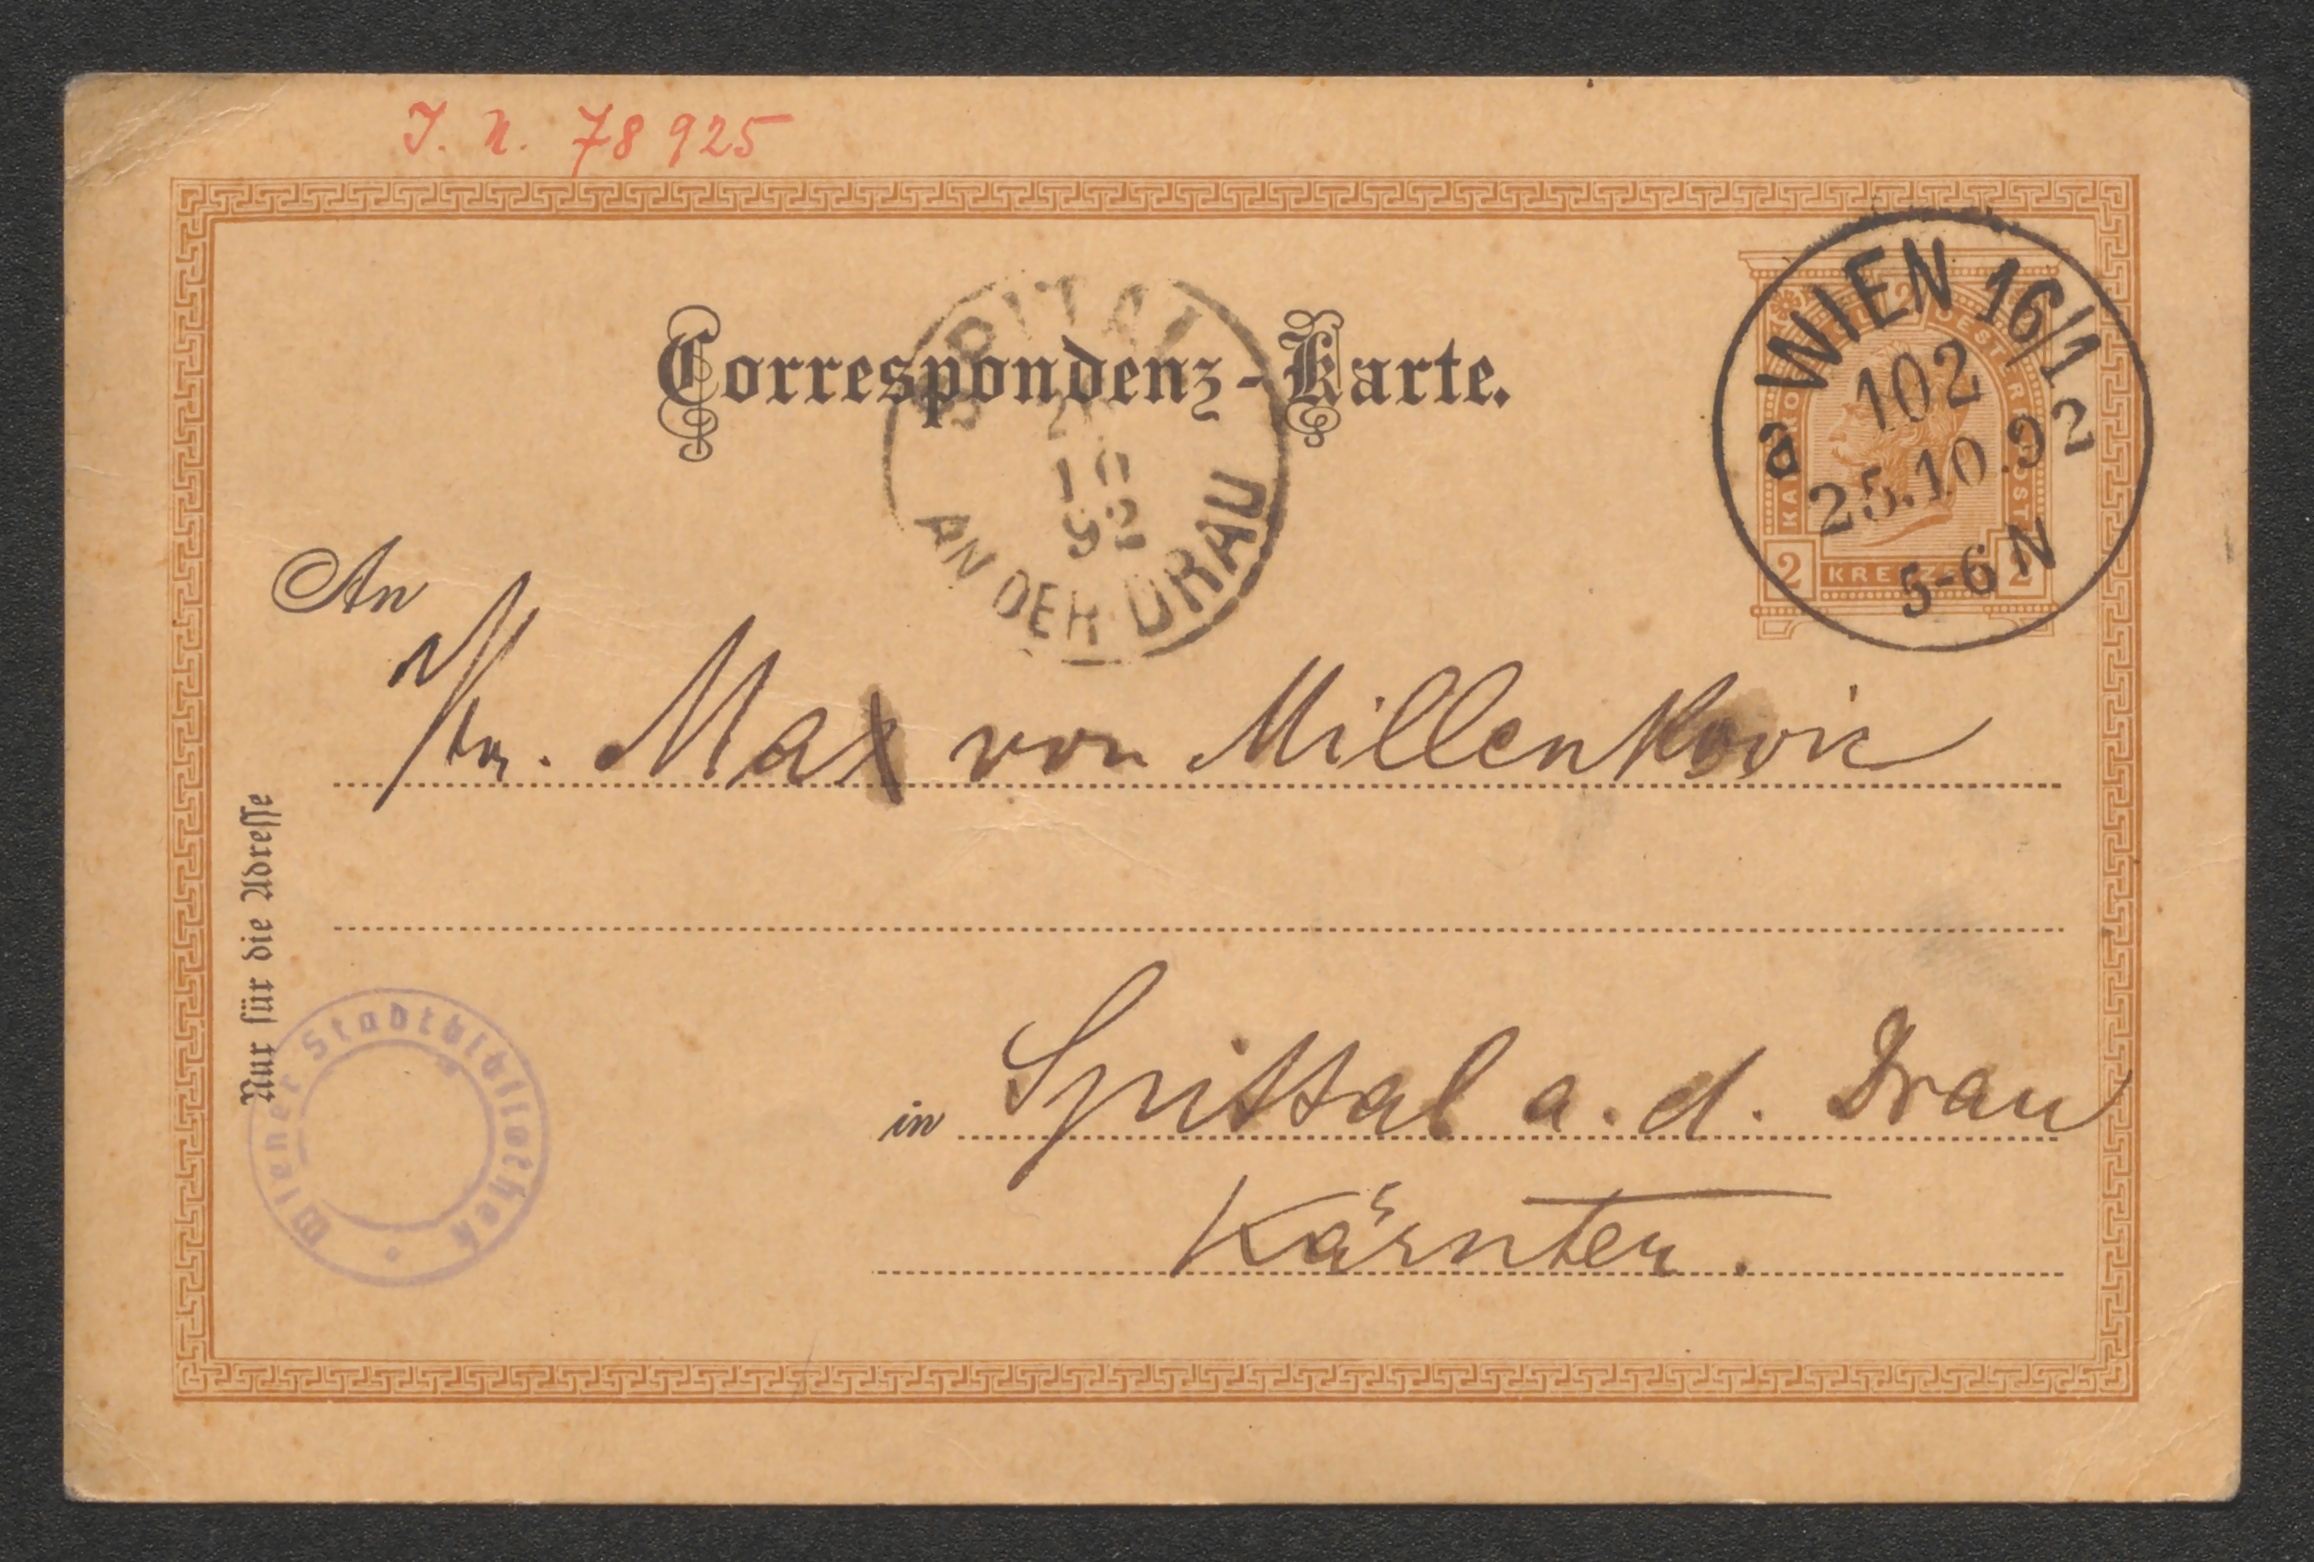 J. N. 78 925
WIEN 16/1
102
25.10.92
5-6 N
2 KREUZER 2
Correspondenz-Karte.
SPITTAL
10
92
AN DER DRAU
An
Hr. Max von Millenkovic
in Spittal a. d. Drau
Kärnten.
Nur für die Adresse
Wiener Stadtbibliothek